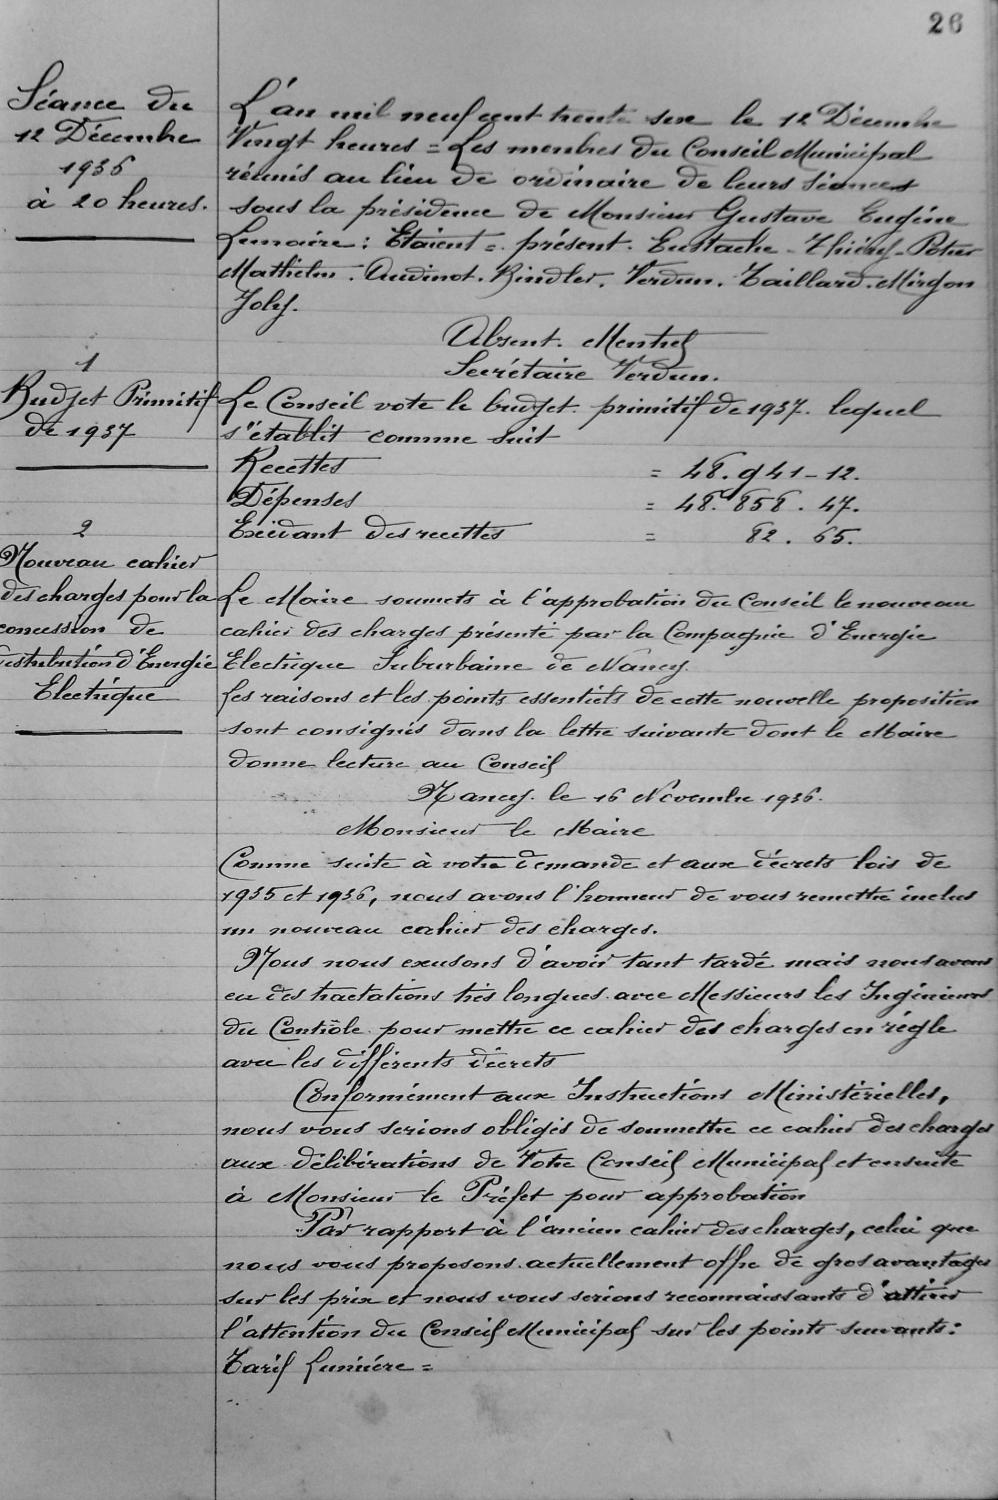 26
Séance du
12 Décembre
1936
à 20 heures.
L'an mil neuf cent trente six le 12 Décembre
Vingt heures = Les membres du Conseil Municipal
réunis au lieu de ordinaire de leurs séances
sous la présidence de Monsieur Gustave Eugène
Lemaire : Etaient = présent. Eustache - Thiéry - Potier
Mathieu. Audinot. Rindler. Verdun. Taillard. Mirgon
Joly.
Absent. Mentrel
Secrétaire Verdun.
1
Budjet Primitif
de 1937
Le Conseil vote le budjet primitif de 1937. lequel
s'établit comme suit
Recettes = 48.941-12.
Dépenses = 48.858.47.
Exédant des recettes = 82.65.
2
Nouveau cahier
des charges pour la
concession de
distribution d'Energie
Electrique
Le Maire soumets à l'approbation du Conseil le nouveau
cahier des charges présenté par la Compagnie d'Energie
Electrique Suburbaine de Nancy
Les raisons et les points essentiels de cette nouvelle proposition
sont consignés dans la lettre suivante dont le Maire
donne lecture au Conseil
Nancy. le 16 Novembre 1936.
Monsieur le Maire
Comme suite à votre demande et aux décrets lois de
1935 et 1936, nous avons l'honneur de vous remettre inclus
un nouveau cahier des charges.
Nous nous excusons d'avoir tant tardé mais nous avons
eu des tractations très longues avec Messieurs les Ingénieurs
du Contrôle pour mettre ce cahier des charges en règle
avec les différents décrets
Conformément aux Instructions Ministérielles,
nous vous serions obligés de soumettre ce cahier des charges
aux délibérations de Votre Conseil Municipal et ensuite
à Monsieur le Préfet pour approbation
Par rapport à l'ancien cahier des charges, celui que
nous vous proposons actuellement offre de gros avantages
sur les prix et nous vous serions reconnaissants d'attirer
l'attention du Conseil Municipal sur les points suivants :
Tarif Lumière =